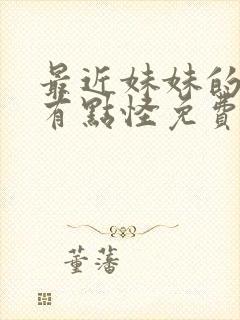 最近妹妹的
有點怪免費
董藩